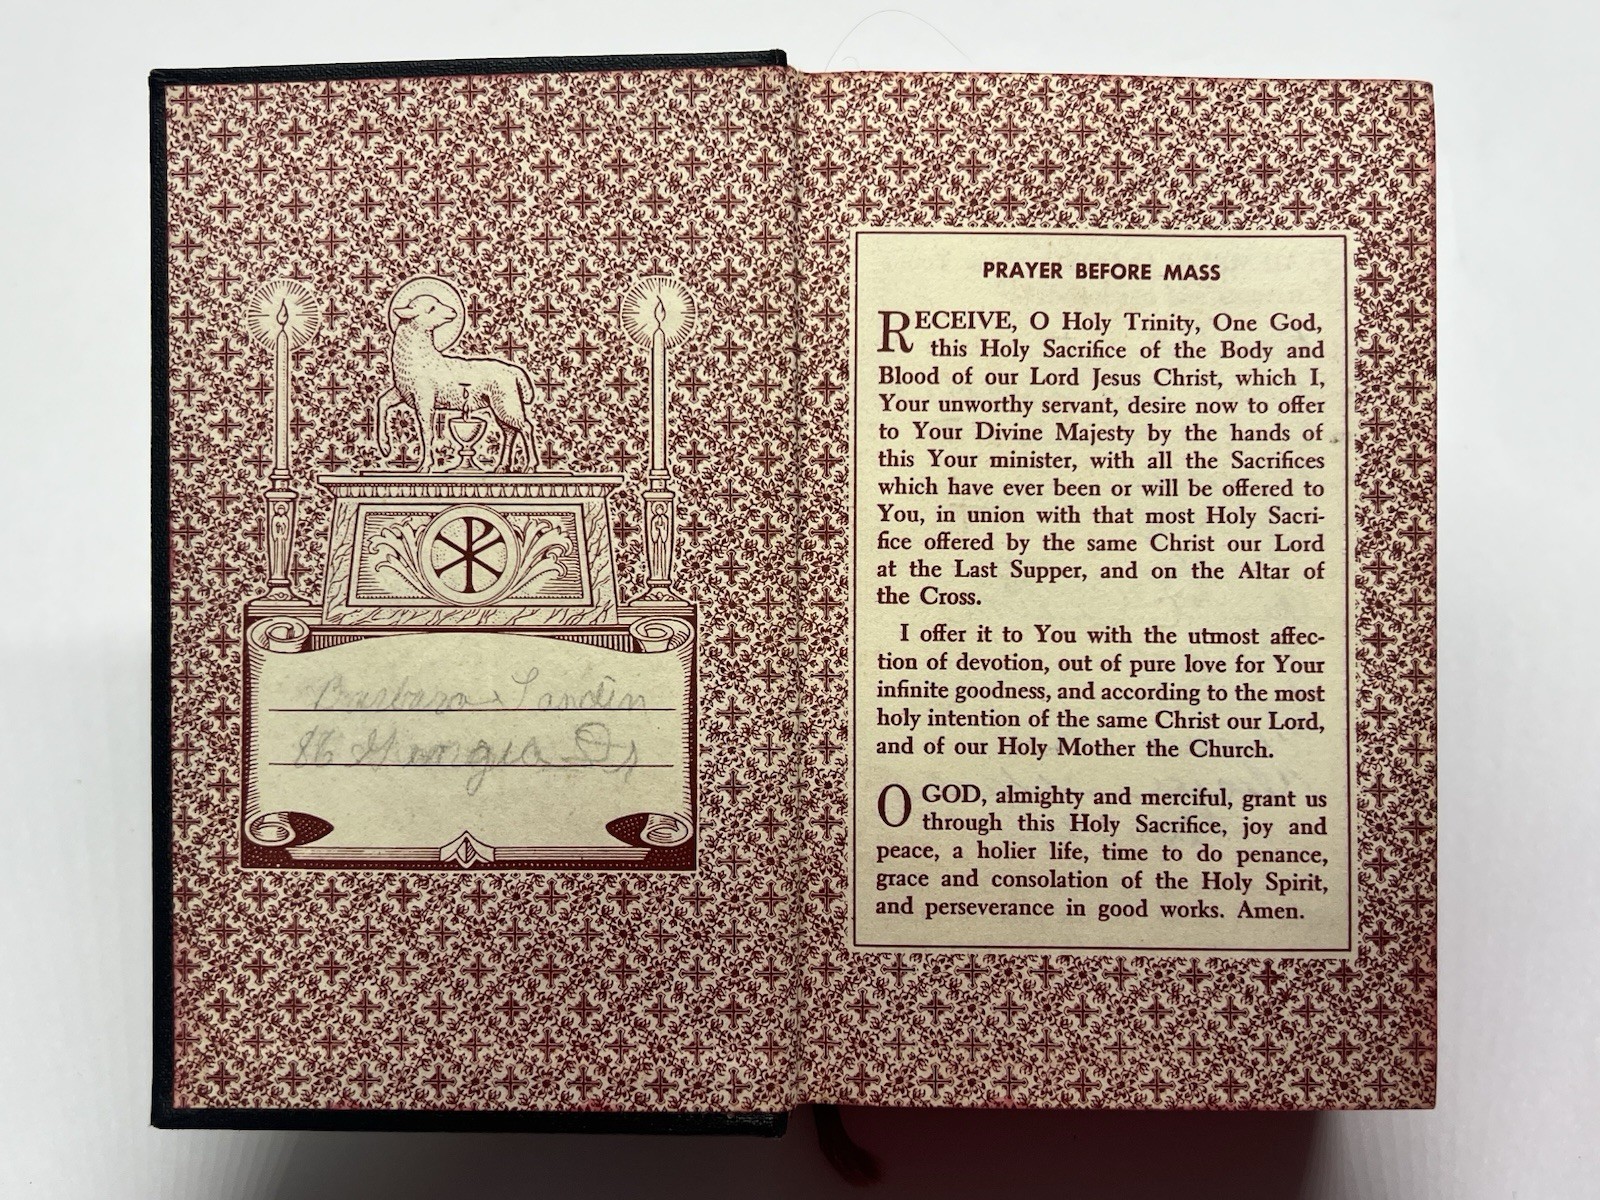 Barbara
86 Dr
PRAYER BEFORE MASS
RECEIVE, O Holy Trinity, One God,
this Holy Sacrifice of the Body and
Blood of our Lord Jesus Christ, which I,
Your unworthy servant, desire now to offer
to Your Divine Majesty by the hands of
this Your minister, with all the Sacrifices
which have ever been or will be offered to
You, in union with that most Holy Sacri-
fice offered by the same Christ our Lord
at the Last Supper, and on the Altar of
the Cross.
I offer it to You with the utmost affec-
tion of devotion, out of pure love for Your
infinite goodness, and according to the most
holy intention of the same Christ our Lord,
and of our Holy Mother the Church.
O GOD, almighty and merciful, grant us
through this Holy Sacrifice, joy and
peace, a holier life, time to do penance,
grace and consolation of the Holy Spirit,
and perseverance in good works. Amen.